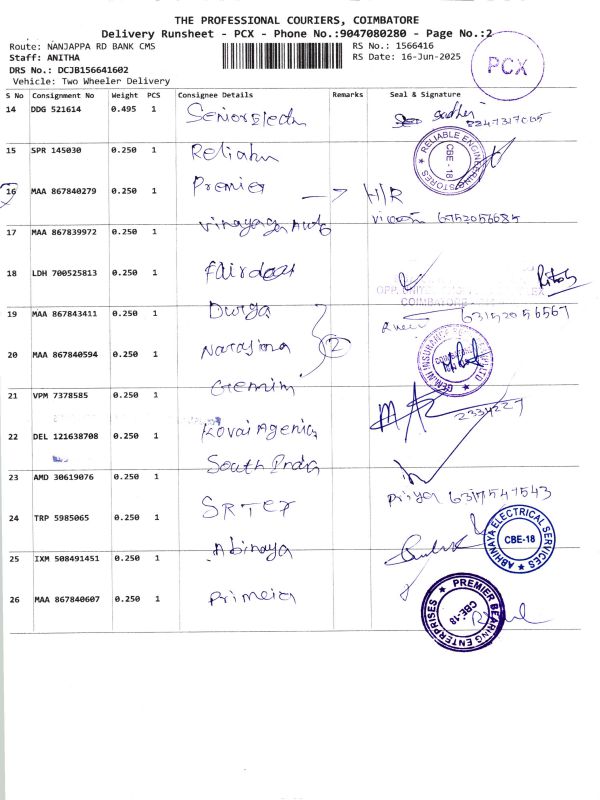 THE PROFESSIONAL COURIERS, COIMBATORE
Delivery Runsheet - PCX - Phone No.:9047080280 - Page No.:2
Route: NANJAPPA RD BANK CMS RS No.: 1566416
Staff: ANITHA RS Date: 16-Jun-2025
DRS No.: DCJB156641602
Vehicle: Two Wheeler Delivery
PCX
S No Consignment No Weight PCS Consignee Details Remarks Seal & Signature
14 DDG 521614 0.495 1
15 SPR 145030 0.250 1
RELIABLE ENGINEERING STORES CBE - 18
16 MAA 867840279 0.250 1 Premier H/R
17 MAA 867839972 0.250 1 Vinayaga Auto
18 LDH 700525813 0.250 1 Fairdeal
COIMBATORE
19 MAA 867843411 0.250 1 Durga
20 MAA 867840594 0.250 1 Narasima 2
Gemini
21 VPM 7378585 0.250 1
22 DEL 121638708 0.250 1 Kovai Agencis
South India
23 AMD 30619076 0.250 1
Priya
24 TRP 5985065 0.250 1 SRTEX
25 IXM 508491451 0.250 1 Abinaya
ABHINAYA ELECTRICAL SERVICES CBE-18
26 MAA 867840607 0.250 1
PREMIER BEARING ENTERPRISES CBE-18